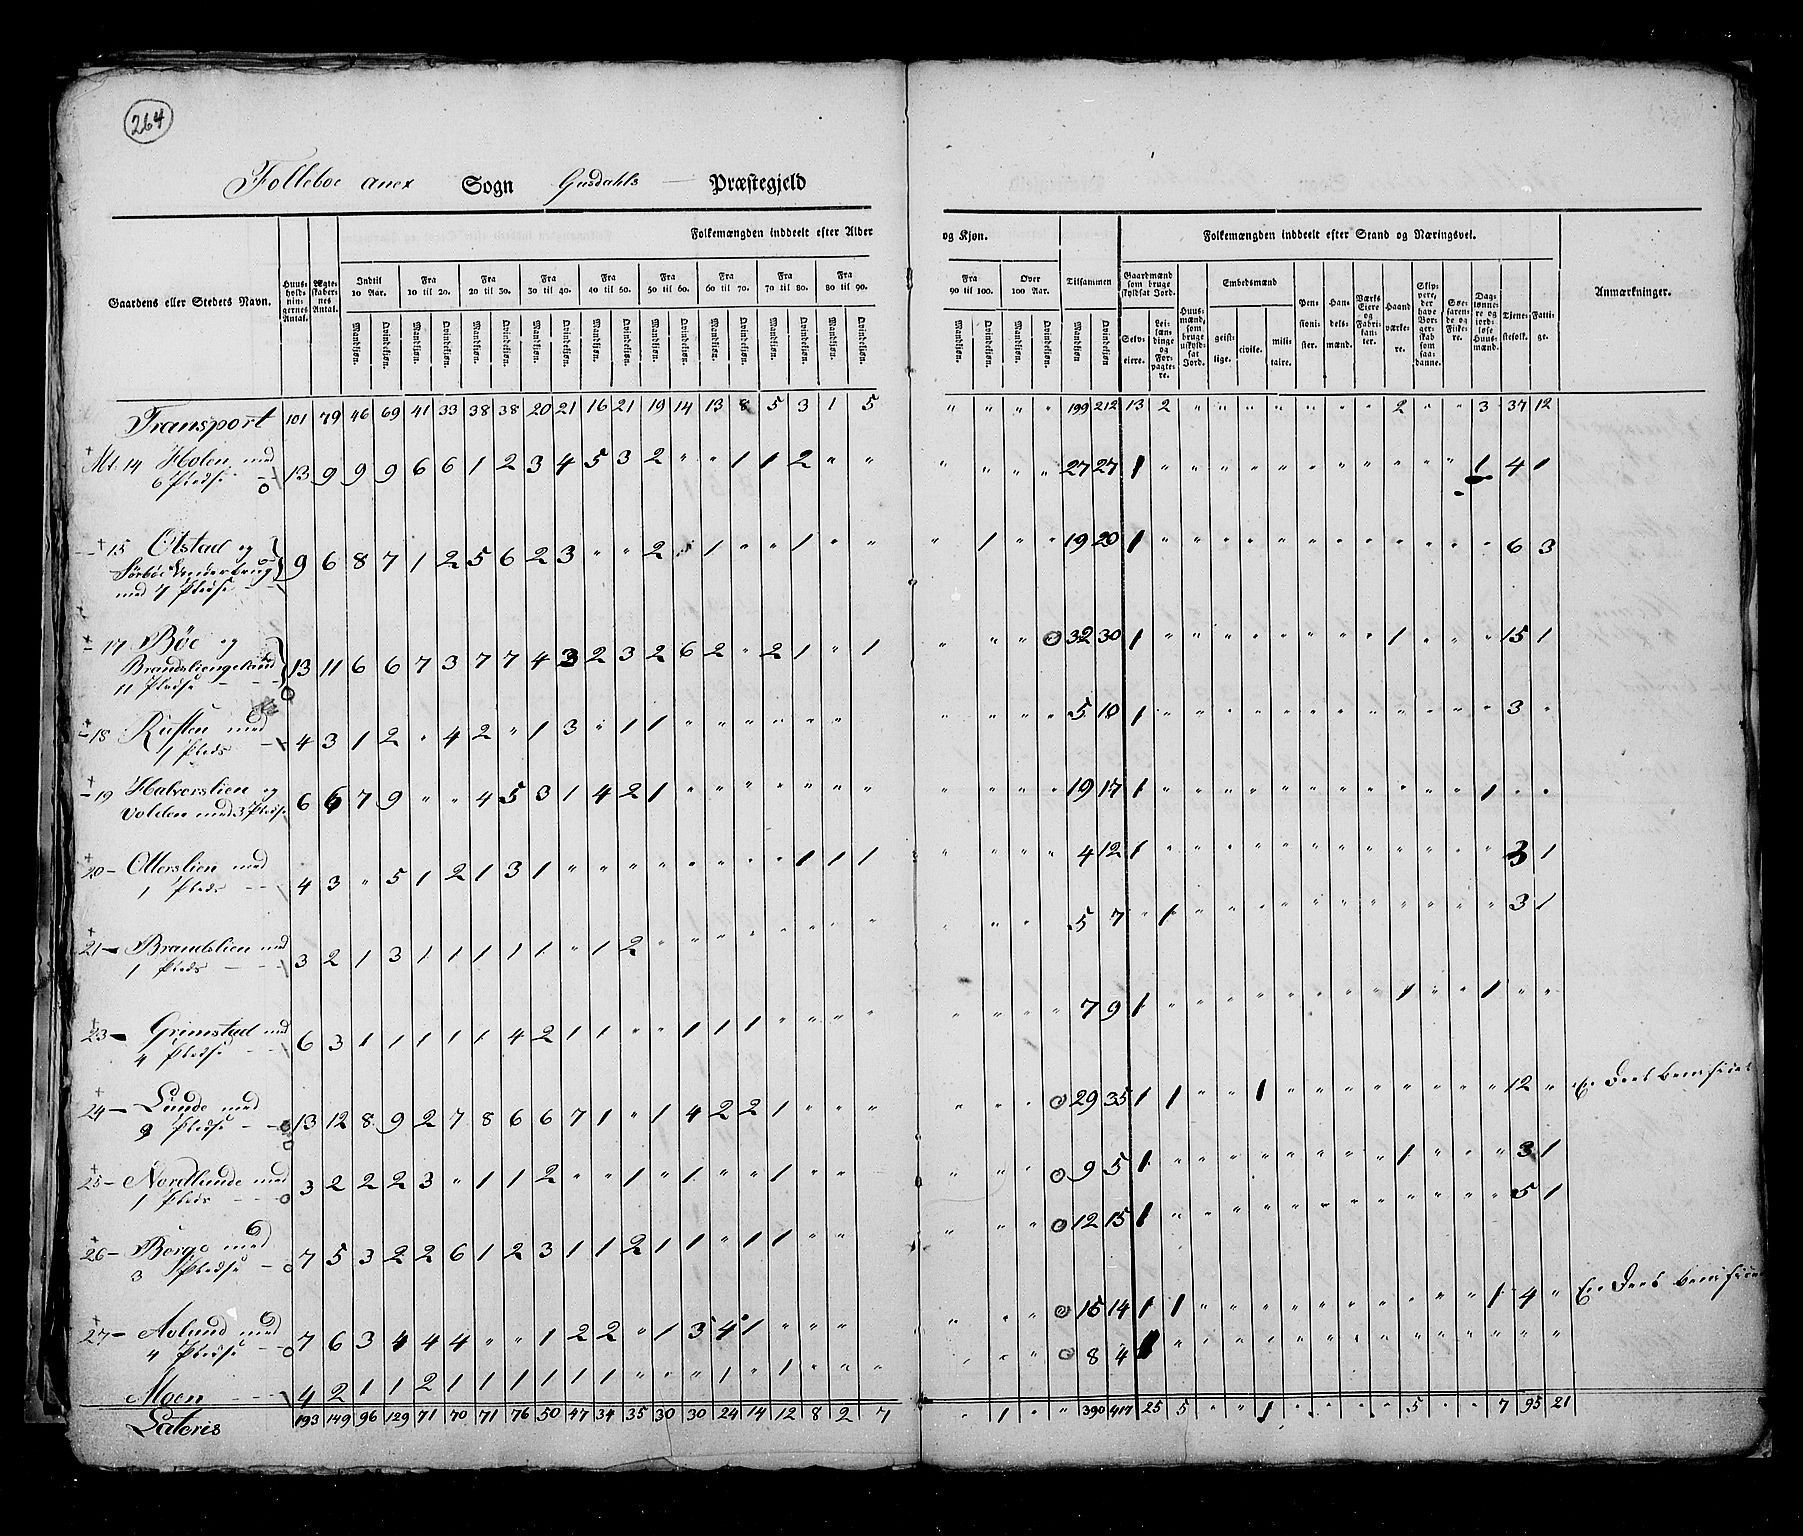 264
Folleboe anex Sogn Gusdahls — Præstegjeld
Gaardens eller Stedets Navn.
Huus-holdnin-gernes Antal.
Ægte-skaber-nes Antal.
Folkemængden inddeelt efter Alder og Kjøn.
Indtil 10 Aar. Fra 10 til 20. Fra 20 til 30. Fra 30 til 40. Fra 40 til 50. Fra 50 til 60. Fra 60 til 70. Fra 70 til 80. Fra 80 til 90. Fra 90 til 100. Over 100 Aar. Tilsammen
Mandkjøn. Qvindekjøn. Mandkjøn. Qvindekjøn. Mandkjøn. Qvindekjøn. Mandkjøn. Qvindekjøn. Mandkjøn. Qvindekjøn. Mandkjøn. Qvindekjøn. Mandkjøn. Qvindekjøn. Mandkjøn. Qvindekjøn. Mandkjøn. Qvindekjøn. Mandkjøn. Qvindekjøn. Mandkjøn. Qvindekjøn. Mandkjøn Qvindekjøn
Folkemængden inddeelt efter Stand og Næringsvei.
Gaardmænd som bruge skyldsat Jord.
Selv-eiere. Lei-læn-dinge og For-pagte-re.
Huus-mænd, som bruge uskyld-sat Jord.
Embedsmænd
geist-lige. civile. mili-taire.
Pen-sioni-ster. Han-dels-mænd. Værks Eiere og Fabri-kan-ter. Haand-værke-re. Skip-pere, der have Bor-ger-skab som saa-danne. Søe-faren-de og Fiske-re. Dag-lønne-re og jord-løse Huus-mænd. Tjene-stefolk. Fatti-ge.
Anmærkninger.
Transport 101 79 46 69 41 33 38 38 20 21 16 21 19 14 13 8 5 3 1 5 " " " " 199 212 13 2 " " " " " " " 2 " " 3 37 12
Mt. 14 Holen med 13 9 9 9 6 6 1 2 3 4 5 3 2 " " 1 1 2 " " " " " " 27 27 1 " " " " " " " " " " " 1 4 1
6 Pladse
15 Olstad og 9 6 8 7 1 2 5 6 2 3 " " 2 " 1 " " 1 " " " 1 " " 19 20 1 " " " " " " " " " " " " 6 3
Sørbøe Underbrug
med 4 Pladse
17 Bøe og 13 11 6 6 7 3 7 7 4 3 2 3 2 6 2 " 2 1 " 1 " " " 32 30 1 " " " " " " " " 1 " " " 15 1
Brandsliengeland
11 Pladse
18 Rusten med 4 3 1 2 " 4 2 " 1 3 " 1 1 " " " " " " " " " " 5 10 1 " " " " " " " " " " " " 3 "
1 Plads
19 Halvorslien og 6 6 7 9 " " 4 5 3 1 4 2 1 " " " " " " " " " " " 19 17 1 " " " " " " " " " " " 1 " "
Volden med 3 Pladse
20 — Otterslien med 4 3 " 5 1 2 1 3 1 " " " " " " " " 1 1 1 " " " " 4 12 1 " " " " " " " " " " " " 3 1
1 Plads
21 — Brandslien med 3 2 1 3 1 1 1 1 1 " 1 2 " " " " " " " " " " " 5 7 " 1 " " " " " " " " " " " 3 1
1 Plads
23 — Grimstad med 6 3 1 1 1 1 1 4 2 1 1 " " 1 1 1 " " " " " " " " 7 9 1 " " " " " " " " 1 " " 1 " "
4 Pladse
24 — Lunde med 13 12 8 9 2 7 8 6 6 7 1 " 1 4 2 2 1 " " " " " " 29 35 1 1 " " 1 " " " " " " " " 12 " En Deel
9 Pladse
25 — Nordlunde med 3 2 2 2 3 " 1 1 2 " " 1 " 1 " " 1 " " " " " 9 5 1 " " " " " " " " 1 " " " 3 1
1 Plads
26 — Berge med 7 5 3 2 2 6 1 2 3 1 1 2 1 1 " 1 1 " " " " " 12 15 1 " " " " " " " " " " " " 5 1
3 Pladse
27 — Aslund med 7 6 3 4 4 4 " " 1 2 2 " 1 3 4 1 " " " " " " 15 14 1 1 " " " " " " " " " " 1 4 " En Deel
4 Pladse
Moen 4 2 1 1 2 1 1 1 1 1 1 " " " 1 " 1 " " " " " " 8 4 1 " " " " " " " " " " " " " "
Lateris 193 149 96 129 71 70 71 76 50 47 34 35 30 30 24 14 12 8 2 7 " 1 " " 390 417 25 5 " " 1 " " " " 5 " " 7 95 21